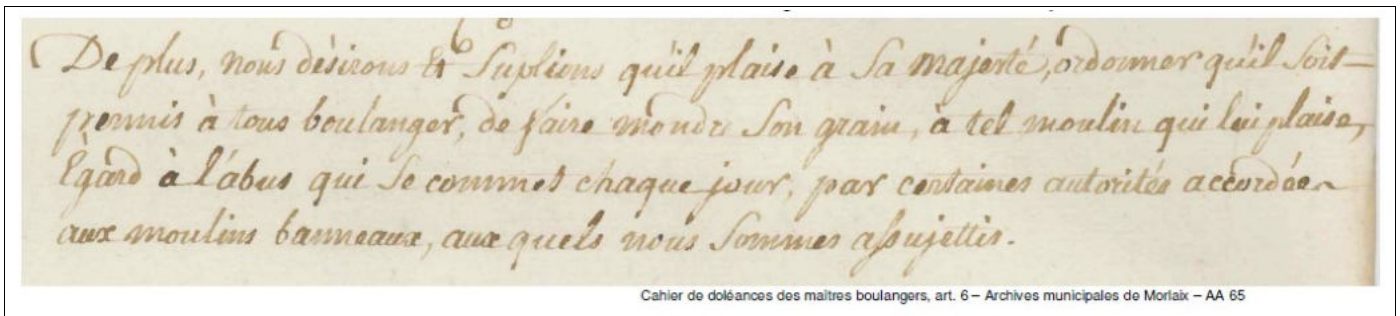 De plus, nous dèsirons & Suplions qu'il plaise à Sa majesté, ordonner qu'il Soit
permis à tous boulanger, de faire moudre Son grain, à tel moulin qui lui plaise,
Ègard à l'abus qui Se commet chaque jour, par certaines autorités accordées
aux moulins banneaux, aux quels nous Sommes assujettis.
Cahier de doléances des maîtres boulangers, art. 6 – Archives municipales de Morlaix – AA 65